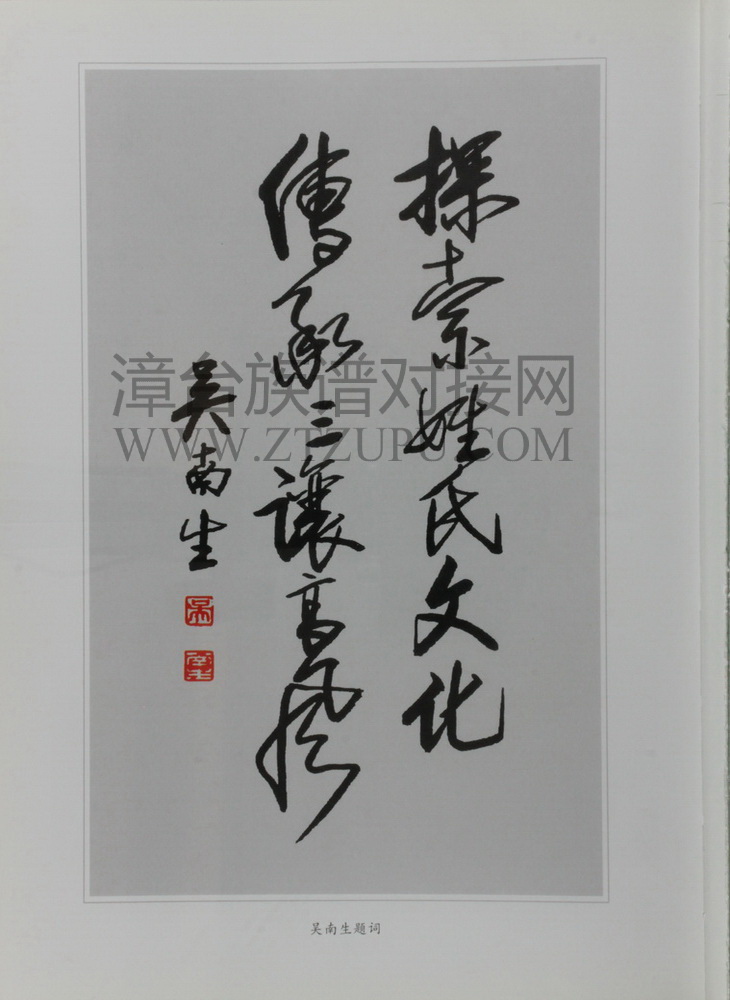 探索姓氏文化
傳承三讓高风
吴南生
吴
南生
漳台族谱对接网
WWW.ZTZUPU.COM
吴南生题词